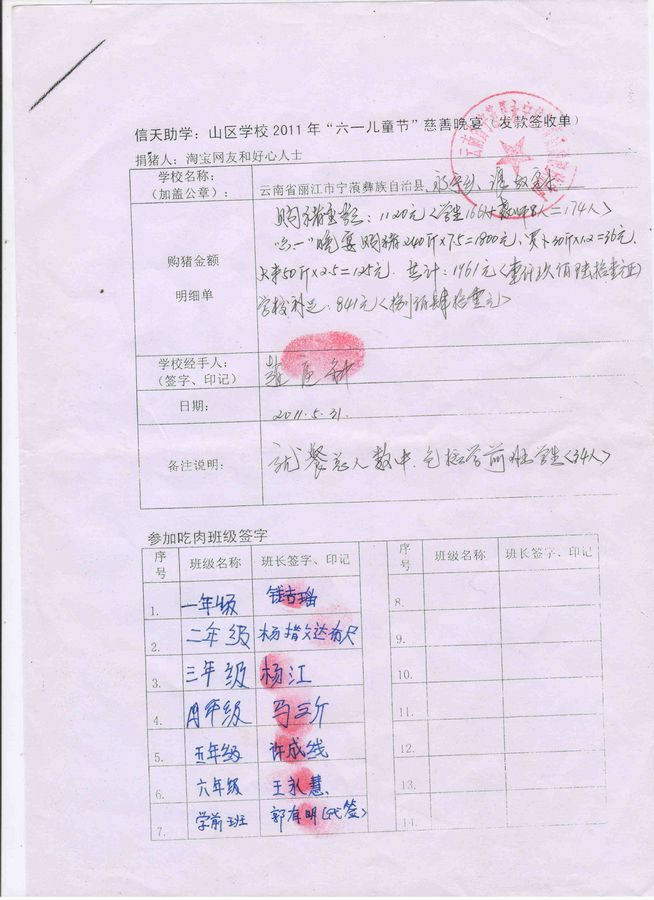 信天助学：山区学校2011年“六一儿童节”慈善晚宴（发款签收单）
捐猪人：淘宝网友和好心人士
学校名称：
（加盖公章）：
云南省丽江市宁蒗彝族自治县
购猪金额
明细单
1120元<学生166人+教师8人=174人>
“六一”晚宴购猪240斤×7.5=1800元、萝卜30斤×1.2=36元、
50斤×2.5=125元. 共计：1961元<壹仟玖佰陆拾壹元>
学校补足：841元<捌佰肆拾壹元>
学校经手人：
（签字、印记）
日期：
2011.5.31.
备注说明：
就餐总人数中，包括学前班学生<34人>
参加吃肉班级签字
序号 班级名称 班长签字、印记 序号 班级名称 班长签字、印记
1. 一年级 8.
2. 二年级 9.
3. 三年级 杨江 10.
4. 四年级 马三介 11.
5. 五年级 许成线 12.
6. 六年级 王永慧 13.
7. 学前班 郭有明（代签） 14.